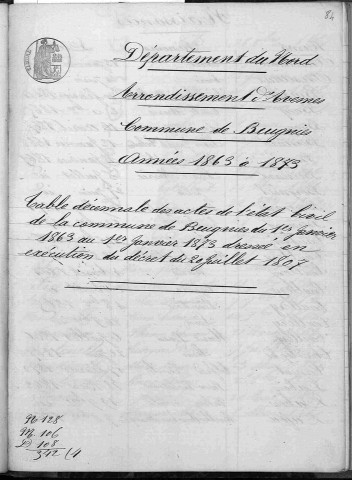 84
Département du Nord
Arrondissement d'Avesnes
Commune de Beugnies
Années 1863 à 1873
Table décennale des actes de l'état Civil
de la commune de Beugnies du 1er Janvier
1863 au 1er Janvier 1873 dressé en
exécution du décret du 20 Juillet 1807
N 128
M 106
D 108
342